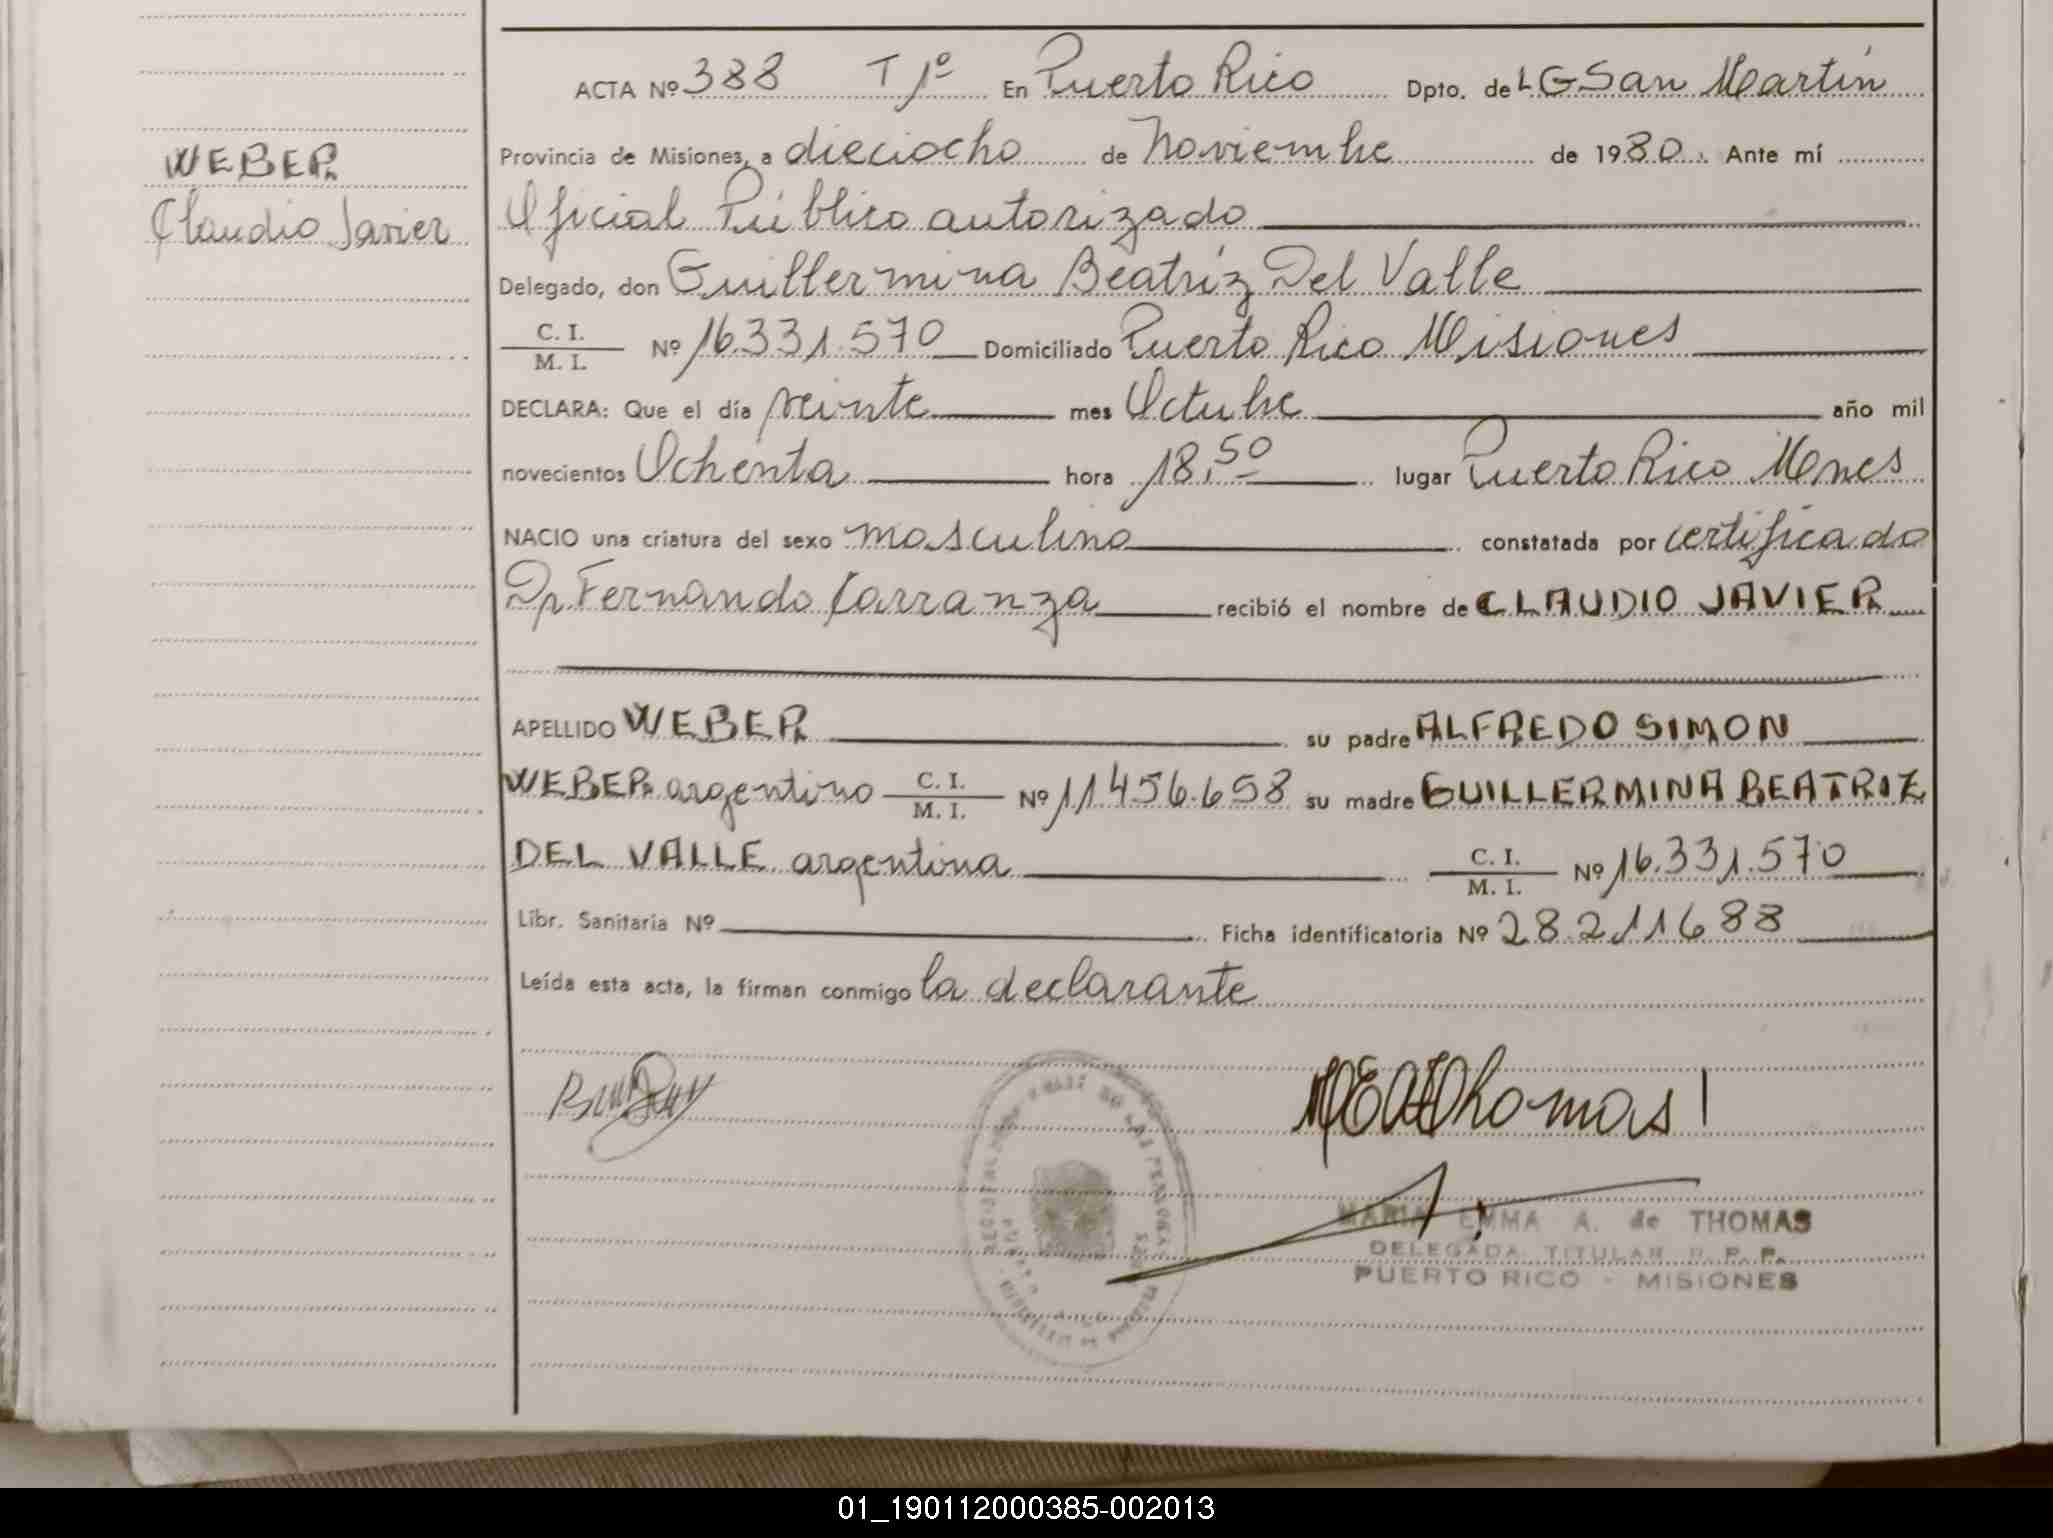 ACTA Nº 388 T 1º En Puerto Rico Dpto. de L G San Martín
Provincia de Misiones, a dieciocho de Noviembre de 1980. Ante mí
WEBER
Claudio Javier
Oficial Público autorizado
Delegado, don Guillermina Beatríz Del Valle
C. I.
M. I. Nº 16.331.570 Domiciliado Puerto Rico Misiones
DECLARA: Que el día veinte mes Octubre año mil
novecientos Ochenta hora 18,50 lugar Puerto Rico Mnes
NACIO una criatura del sexo masculino constatada por certificado
Dr Fernando Carranza recibió el nombre de CLAUDIO JAVIER
APELLIDO WEBER su padre ALFREDO SIMON
WEBER argentino C. I. M. I. Nº 11.456.658 su madre GUILLERMINA BEATRIZ
DEL VALLE argentina C. I. M. I. Nº 16.331.570
Libr. Sanitaria Nº Ficha identificatoria Nº 28.211688
Leída esta acta, la firman conmigo la declarante
MEAdThomas
MARIA EMMA A. de THOMAS
DELEGADA TITULAR R. P. P.
PUERTO RICO - MISIONES
01_190112000385-002013